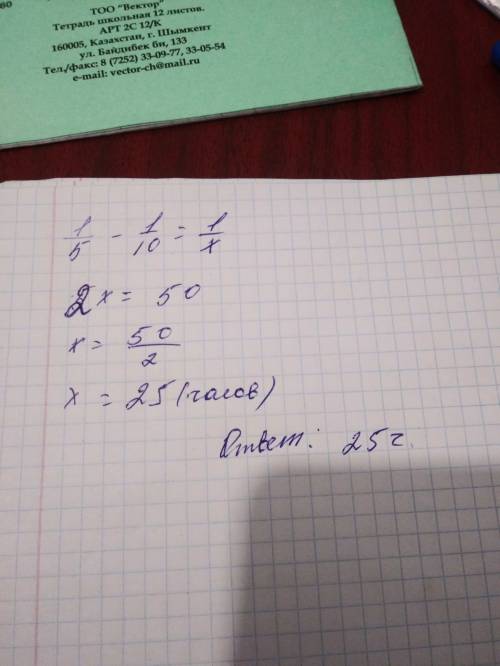 80
ТОО "Вектор"
Тетрадь школьная 12 листов.
АРТ 2С 12/К
160005, Казахстан, г. Шымкент
ул. Байдибек би, 133
Тел./факс: 8 (7252) 33-09-77, 33-05-54
e-mail: vector-ch@mail.ru
1/5 - 1/10 = 1/x
2x = 50
x = 50/2
x = 25 (часов)
Ответ: 25 ч.